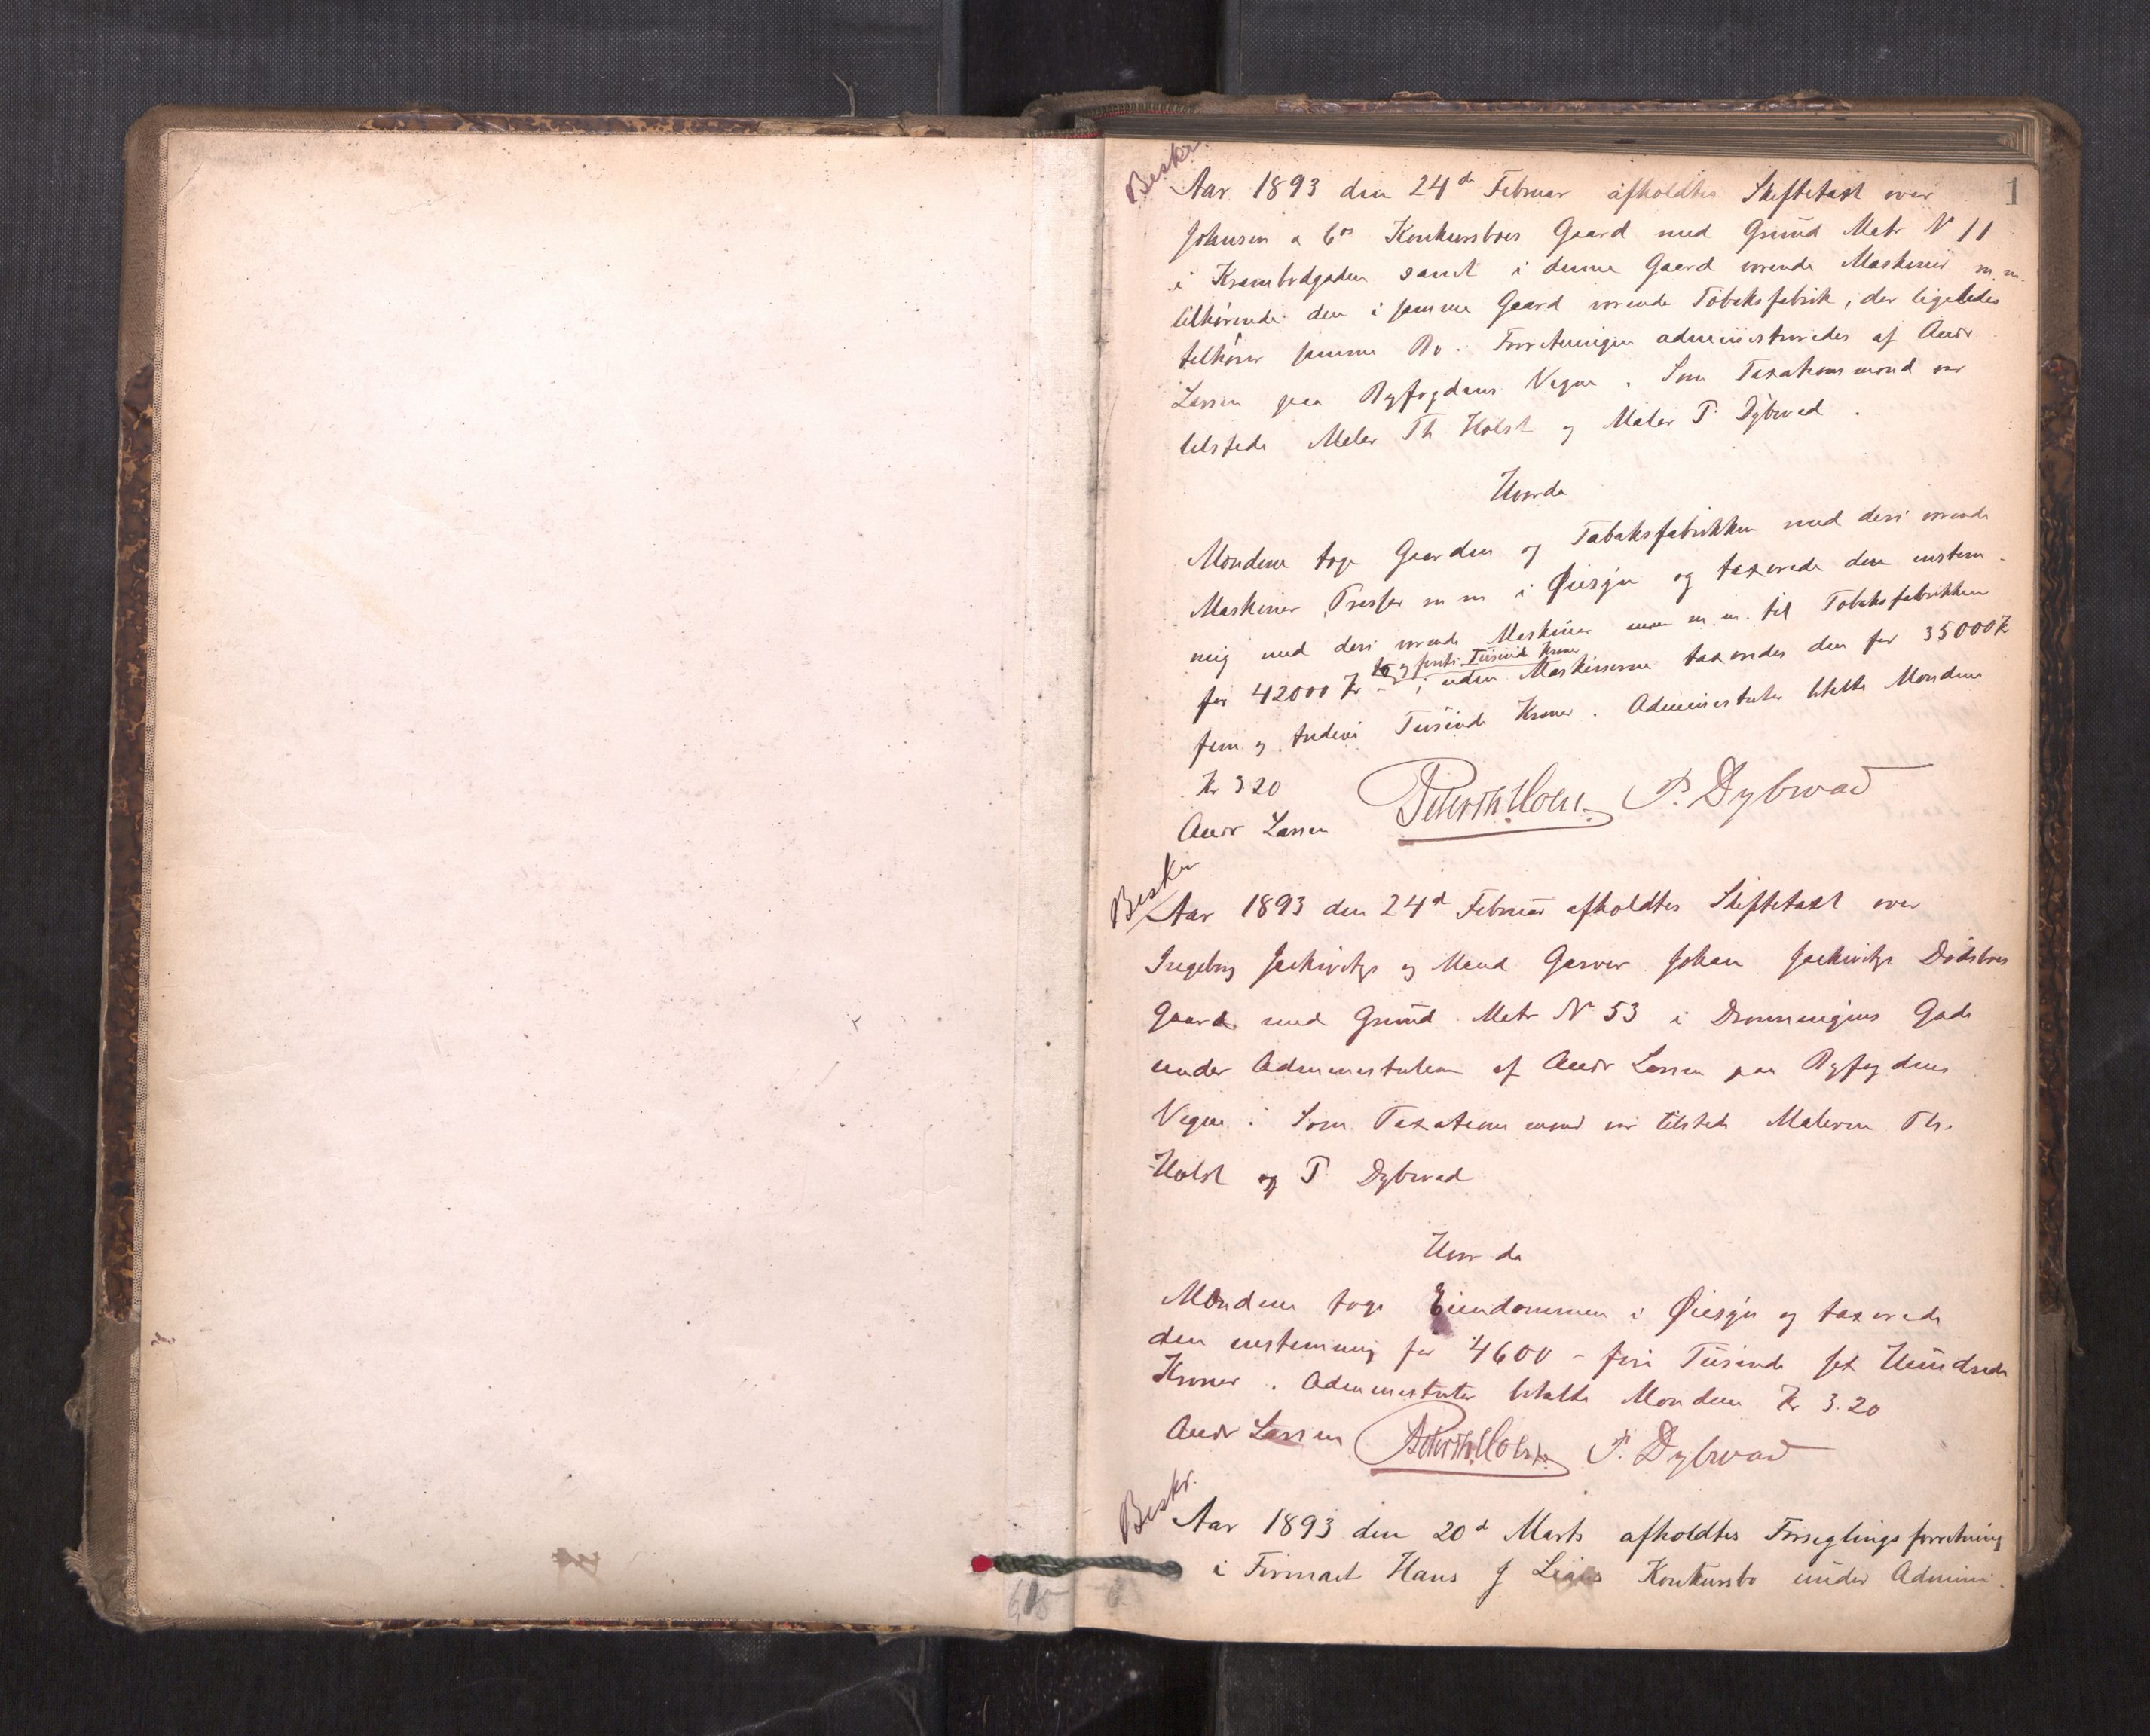 1
Beskr.
Aar 1893 den 24de Februar afholdtes Skiftetaxt over
Johnsen & Cos Konkursboes Gaard med Grund Matr N 11
i Krambodgaden samt i denne Gaard værende Maskiner m.m.
tilhørende den i samme Gaard værende Tobaksfabrik, der ligeledes
tilhører samme Bo. Forretningen administreredes af Andr
Larsen paa Byfogdens Vegne. Som Taxationsmænd var
tilstede Maler Th Holst og Maler P. Dybwad.
Hvorda
Mændene toge Gaarden og Tabaksfabrikken med deri værende
Maskiner, Presser m m i Øiesyn og taxerede den enstem-
mig med deri værende Maskiner m.m. til Tobaksfabrikken
to og forti Tusinde Kroner
for 42000 Kr - ; uden Maskinerne taxeredes den for 35000 Kr
fem og tredive Tusinde Kroner. Administrator betalte Mændene
Kr 3 20
Andr Larsen Peter Th. Holst. P. Dybwad
Beskr
Aar 1893 den 24d Februar afholdtes Skiftetaxt over
Ingeborg Jackwitz og Mand Garver Johan Jackwitz Dødsboes
Gaard med Grund Matr N 53 i Dronningens Gade
under Administration af Andr Larsen paa Byfogdens
Vegne. Som Taxationsmænd var tilstede Malerne Th.
Holst og P Dybwad
Hvor da
Mændene toge Eiendommen i Øiesyn og taxerede
den enstemmig for 4600 - fire Tusinde sex Hundrede
Kroner. Administrator betalte Mændene Kr 3.20
Andr Larsen Peter Th. Holst. P. Dybwad
Beskr.
Aar 1893 den 20d Marts afholdtes Forseglingsforretning
i Firmaet Hans J Konkursbo under Admini-